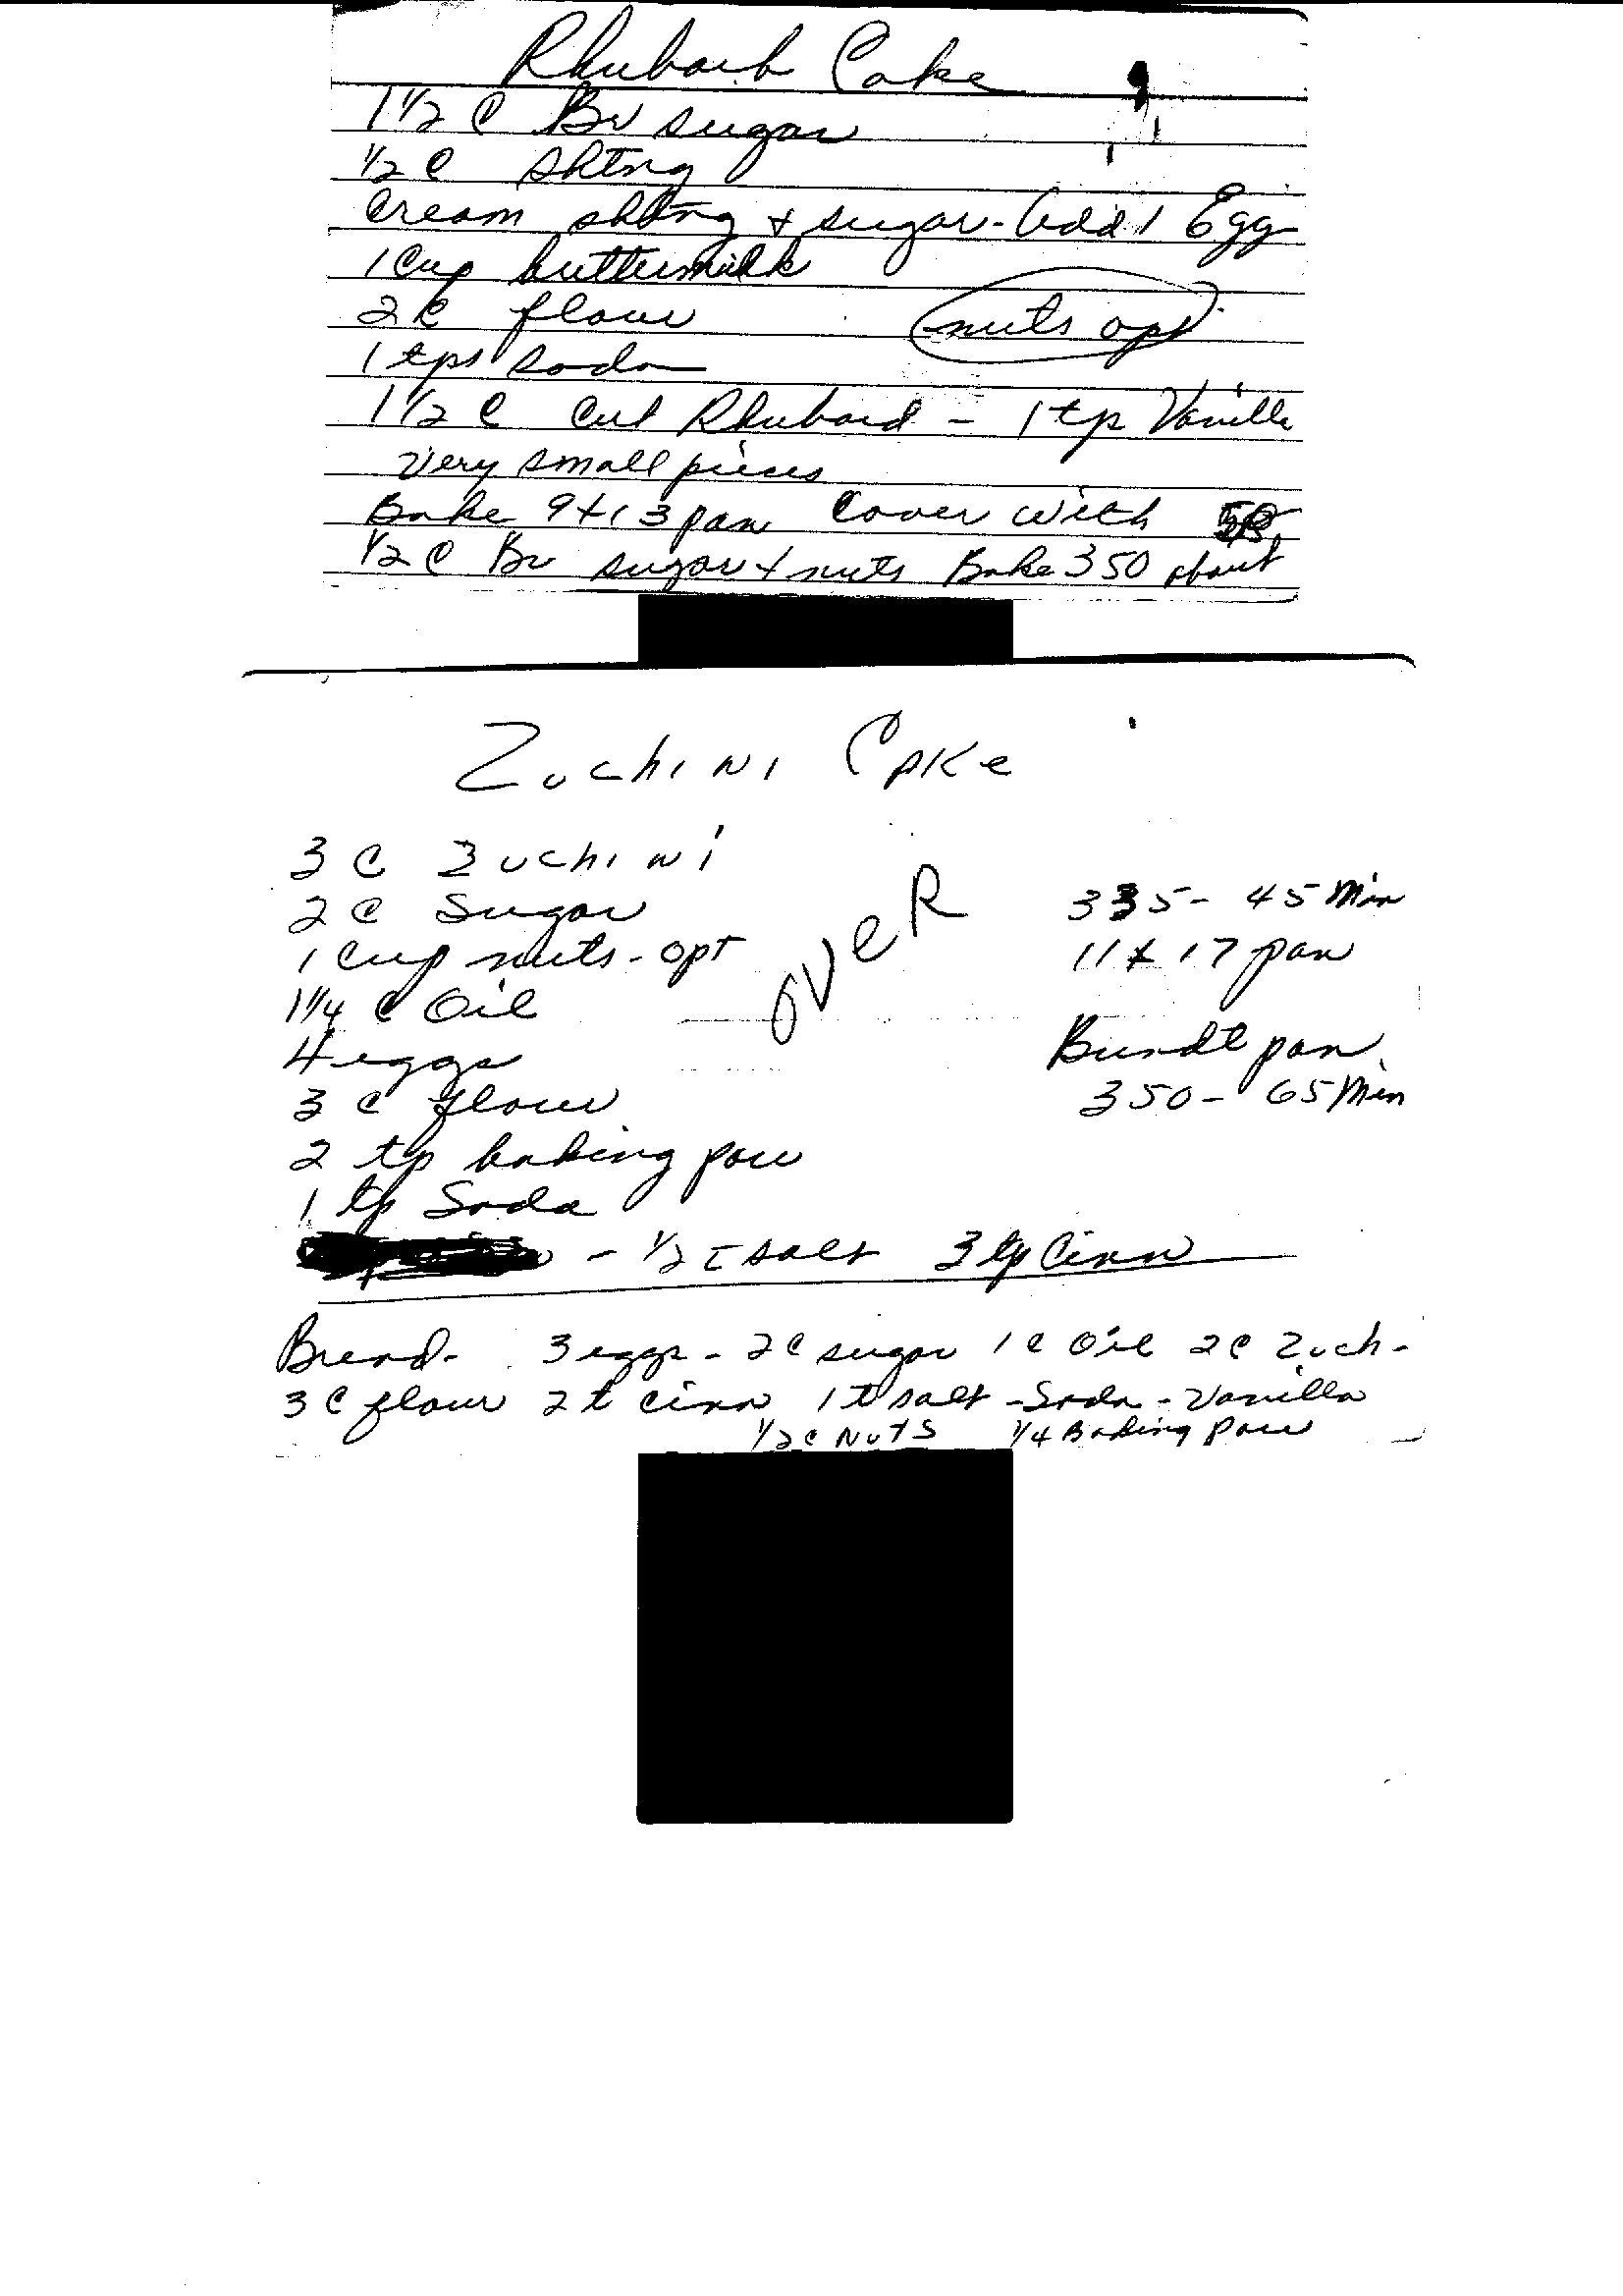 Rhubarb Cake
1 1/2 C Br sugar
1/2 C shtng
Cream shtng + sugar - Add 1 Egg
1 Cup buttermilk
2 C flour
nuts opt
1 tps soda
1 1/2 C Cut Rhubard - 1 tp Vanilla
Very small pieces
Bake 9x13 pan Cover with
1/2 C Br sugar + nuts Bake 350 about
Zuchini Cake
3 C Zuchini
2 C Sugar
1 Cup nuts - opt
1 1/4 C Oil
4 eggs
3 C flour
2 tp baking pow
1 tp Soda
- 1/2 t salt 3 tp Cinn
OVER
335 - 45 Min
11 x 17 pan
Bundt pan
350 - 65 Min
Bread - 3 eggs - 2 C sugar 1 C Oil 2 C Zuch -
3 C flour 2 t cinn 1 t salt - Soda - Vanilla
1/2 C NUTS 1/4 Baking Pow